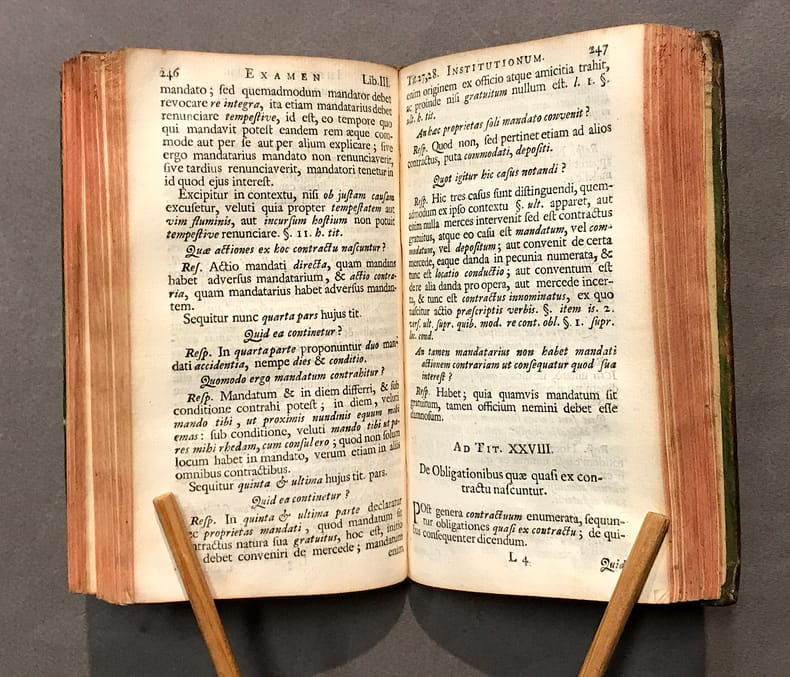 246 EXAMEN Lib. III.
mandato; ſed quemadmodum mandator debet
revocare re integra, ita etiam mandatarius debet
renunciare tempeſtive, id eſt, eo tempore quo
qui mandavit poteſt eandem rem æque com-
mode aut per ſe aut per alium explicare; ſive
ergo mandatarius mandato non renunciaverit,
ſive tardius renunciaverit, mandatori tenetur in
id quod ejus intereſt.
Excipitur in contextu, niſi ob juſtam cauſam
excuſetur, veluti quia propter tempeſtatem aut
vim fluminis, aut incurſum hoſtium non potuit
tempeſtive renunciare. §. 11. h. tit.
Quæ actiones ex hoc contractu naſcuntur?
Reſ. Actio mandati directa, quam mandans
habet adverſus mandatarium, & actio contra-
ria, quam mandatarius habet adverſus mandan-
tem.
Sequitur nunc quarta pars hujus tit.
Quid ea continetur?
Reſp. In quarta parte proponuntur duo man-
dati accidentia, nempe dies & conditio.
Quomodo ergo mandatum contrahitur?
Reſp. Mandatum & in diem differri, & ſub
conditione contrahi poteſt; in diem, veluti
mando tibi, ut proximis nundinis equum mihi
emas: ſub conditione, veluti mando tibi ut pa-
res mihi rhedam, cum conſul ero; quod non ſolum
locum habet in mandato, verum etiam in aliis
omnibus contractibus.
Sequitur quinta & ultima hujus tit. pars.
Quid ea continetur?
Reſp. In quinta & ultima parte declaratur
proprietas mandati, quod mandatum ſit
contractus natura ſua gratuitus, hoc eſt, initio
debet conveniri de mercede; mandatum
enim
Tit. 27, 28. INSTITUTIONUM. 247
enim originem ex officio atque amicitia trahit,
ac proinde niſi gratuitum nullum eſt. l. 1. §.
ult. h. tit.
An hæc proprietas ſoli mandato convenit?
Reſp. Quod non, ſed pertinet etiam ad alios
contractus, puta commodati, depoſiti.
Quot igitur hic caſus notandi?
Reſp. Hic tres caſus ſunt diſtinguendi, quem-
admodum ex ipſo contextu §. ult. apparet, aut
enim nulla merces intervenit ſed eſt contractus
gratuitus, atque eo caſu eſt mandatum, vel com-
modatum, vel depoſitum; aut convenit de certa
mercede, eaque danda in pecunia numerata, &
tunc eſt locatio conductio; aut conventum eſt
de re alia danda pro opera, aut mercede incer-
ta, & tunc eſt contractus innominatus, ex quo
naſcitur actio præſcriptis verbis. §. item is. 2.
verſ. ult. ſupr. quib. mod. re cont. obl. §. 1. ſupr.
loc. cond.
An tamen mandatarius non habet mandati
actionem contrariam ut conſequatur quod ſua
intereſt?
Reſp. Habet; quia quamvis mandatum ſit
gratuitum, tamen officium nemini debet eſſe
damnoſum.
AD TIT. XXVIII.
De Obligationibus quæ quaſi ex con-
tractu naſcuntur.
POſt genera contractuum enumerata, ſequun-
tur obligationes quaſi ex contractu; de qui-
bus conſequenter dicendum.
L 4 Quid